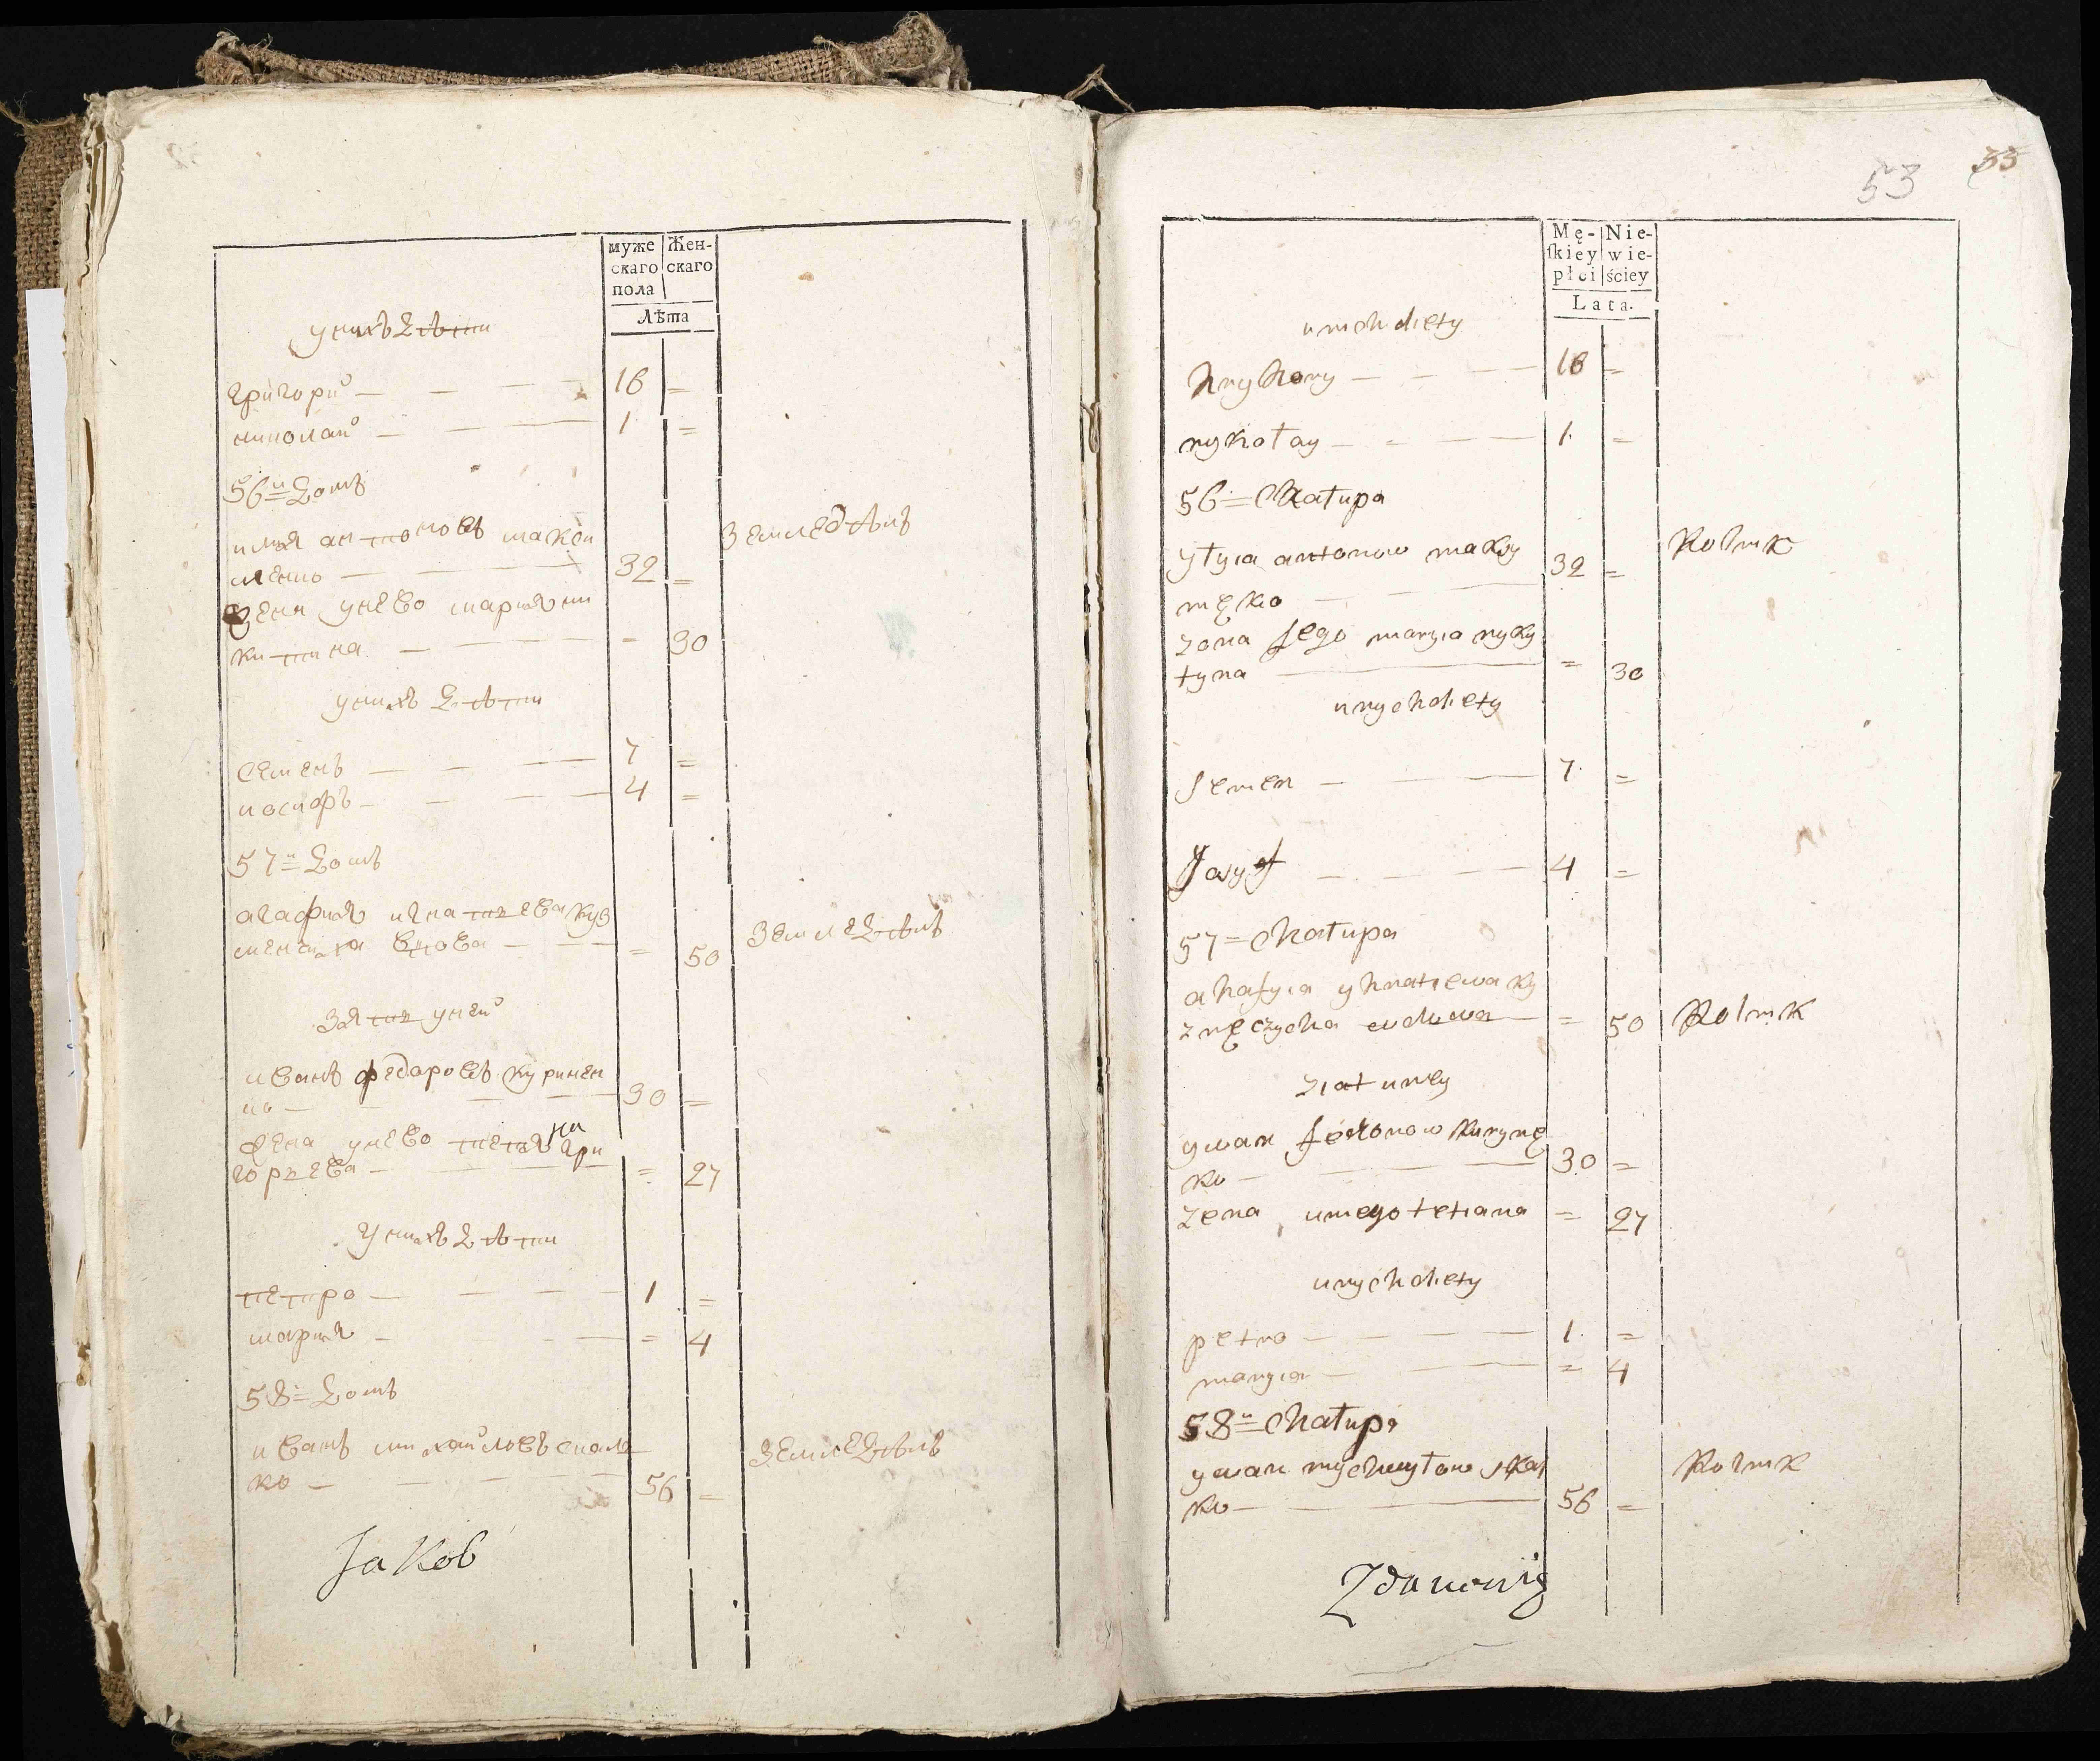 муже
скаго
пола
Жен-
скаго
Лѣта
у нихъ дѣти
григорий — — — 16 =
николай — — — 1 =
56й домъ
илья антоновъ макси
менко — — 32 = земледѣлъ
жена у нево марья ни
китина — — = 30
у нихъ дѣти
семенъ — — — 7 =
иосифъ — — — 4 =
57й домъ
агафия игнатьева куз
менчиха вдова — — = 50 земледѣлъ
зять у ней
иванъ федоровъ куринен
ко — — — 30 =
жена у нево тетяна гри
горьева — — = 27
у нихъ дѣти
петро — — — 1 =
мария — — = 4
58й домъ
иванъ михайловъ скал
ко — — — 56 = земледѣлъ
Jakob
53
53
Mę-
ſkiey
płci
Nie-
wie-
ściey
Lata.
unich diety
hryhory — — — 16 =
nykołay — — — 1 =
56 = Chałupa
yłyia antonow maksy
męko — — 32 = Rolnik
zona Jego maryia nyky
tyna — = 30
unych diety
semen — — — 7 =
Josyf — — — 4 =
57 = Chałupa
ahafyia yhnatiewa ky
zmęczycha wdowa — = 50 Rolnik
ziat uniey
ywan fedorow kurynę
ko — — — 30 =
zena uniego tetiana = 27
unych diety
petro — — — 1 =
maryia — — = 4
58й = Chałupa
ywan mychayłow skal
ko — — 56 = Rolnik
Zdanowicz